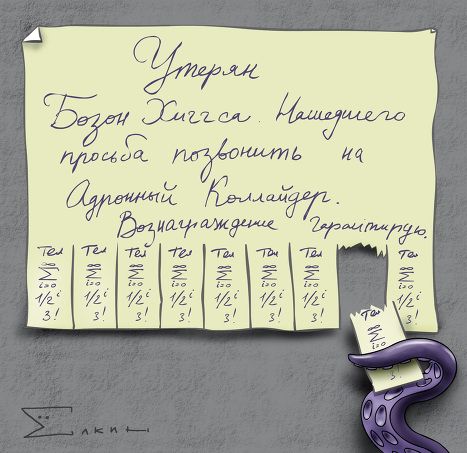 Утерян
Бозон Хиггса. Нашедшего
просьба позвонить на
Адронный Коллайдер.
Вознаграждение Гарантирую.
Тел Тел Тел Тел Тел Тел Тел Тел
∞ ∞ ∞ ∞ ∞ ∞ ∞ ∞
∑ ∑ ∑ ∑ ∑ ∑ ∑ ∑
i=0 i=0 i=0 i=0 i=0 i=0 i=0 i=0
1/2^i 1/2^i 1/2^i 1/2^i 1/2^i 1/2^i 1/2^i 1/2^i
3! 3! 3! 3! 3! 3! 3!
Тел
∞
∑
i=0
3!
Ёлкин